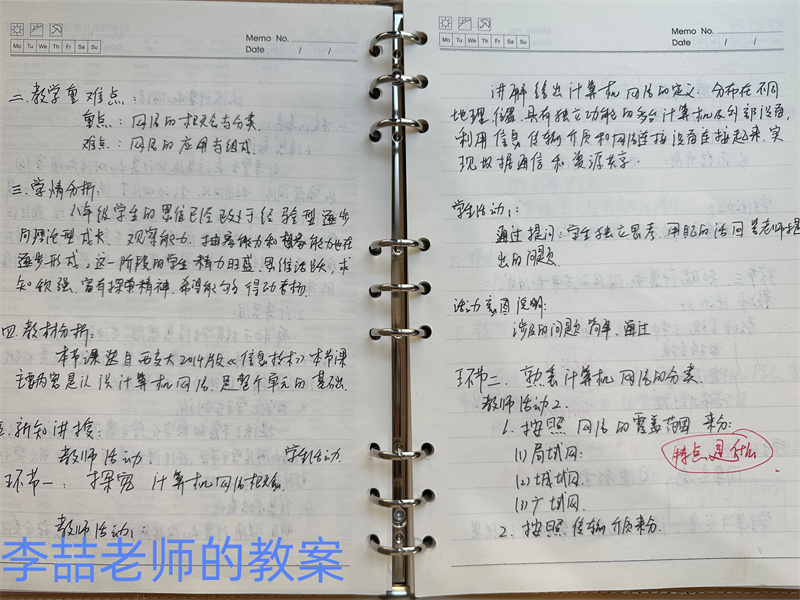 Memo No.
Mo Tu We Th Fr Sa Su
Date / /
二.教学重难点:
重点:网络的概念与分类.
难点:网络的应用与组成.
三.学情分析:
八年级学生的思维已经趋于经验型逐步
向理论型成长.观察能力.抽象能力和想象能力也在
逐步形成,这一阶段的学生精力旺盛,思维活跃,求
知欲强,富有探索精神,希望能够得到表扬.
四.教材分析:
本节课选自西交大2014版《信息技术》本节课
主要内容是认识计算机网络.是整个单元的基础.
五.新知讲授:
教师活动: 学生活动
环节一:探究计算机网络概念.
教师活动1:
李喆老师的教案
Memo No.
Mo Tu We Th Fr Sa Su
Date / /
讲解给出计算机网络的定义:分布在不同
地理位置具有独立功能的多台计算机及外部设备,
利用信息传输介质和网络连接设备连接起来,实
现数据通信和资源共享.
学生活动1:
通过提问:学生独立思考.用自己的话回答老师提
出的问题.
活动意图说明:
涉及的问题简单,通过
环节二.熟悉计算机网络的分类.
教师活动2.
1.按照网络的覆盖范围来分:
(1)局域网:
特点是什么
(2)城域网.
(3)广域网.
2.按照传输介质来分.